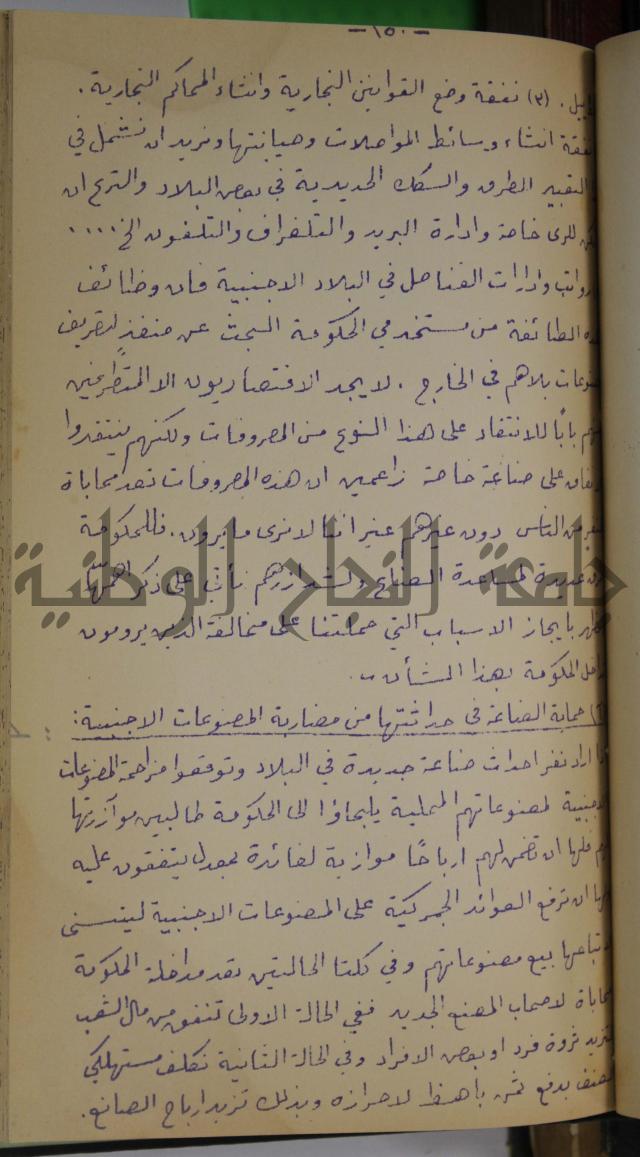 -١٥٠-
. (٣) نفقة وضع القوانين التجارية وانشاء المحاكم التجارية .
انشاء وسائط المواصلات وصيانتها ونريد ان نشمل في
التعبير الطرق والسكك الحديدية في بعض البلاد والترع ان
للرى خاصة وادارة البريد والتلغراف والتلفون الخ ....
وادارات القناصل في البلاد الاجنبية فان وظائف
الطائفة من مستخدمي الحكومة البحث عن منفذٍ لتصريف
بلادهم في الخارج . لا يجد الاقتصاديون الا المتطرفين
بابًا للانتقاد على هذا النوع من المصروفات ولكنهم ينتقدوا
على صناعة خاصة زاعمين ان هذه المصروفات تعد محاباة
من الناس دون غيرهم غير اننا لا نرى ما يرون . فللحكومة
عديدة لمساعدة الصنايع نأتي على ذكر اهمها
بايجاز الاسباب التي حملتنا على مخالفة الذين يرومون
الحكومة بهذا الشأن ..
حماية الصناعة في حداثتها من مضاربة المصنوعات الاجنبية :
اراد نفر احداث صناعة جديدة في البلاد وتوقعوا مزاحمة المصنوعات
لمصنوعاتهم المحلية يلجاؤا الى الحكومة طالبين موآزرتها
فلها ان تضمن لهم ارباحًا موازية لفائدة بمعدل يتفقون عليه
ان ترفع العوائد الجمركية على المصنوعات الاجنبية ليتسنى
بيع مصنوعاتهم وفي كلتا الحالتين تعد مداخلة الحكومة
محاباة لاصحاب المصنع الجديد ففي الحالة الاولى تنفق من مال الشعب
ثروة فرد او بعض الافراد وفي الحالة الثانية تكلف مستهلكي
بدفع ثمن باهظ لاحرازه وبذلك تزيد ارباح الصانع .
جامعة النجاح الوطنية